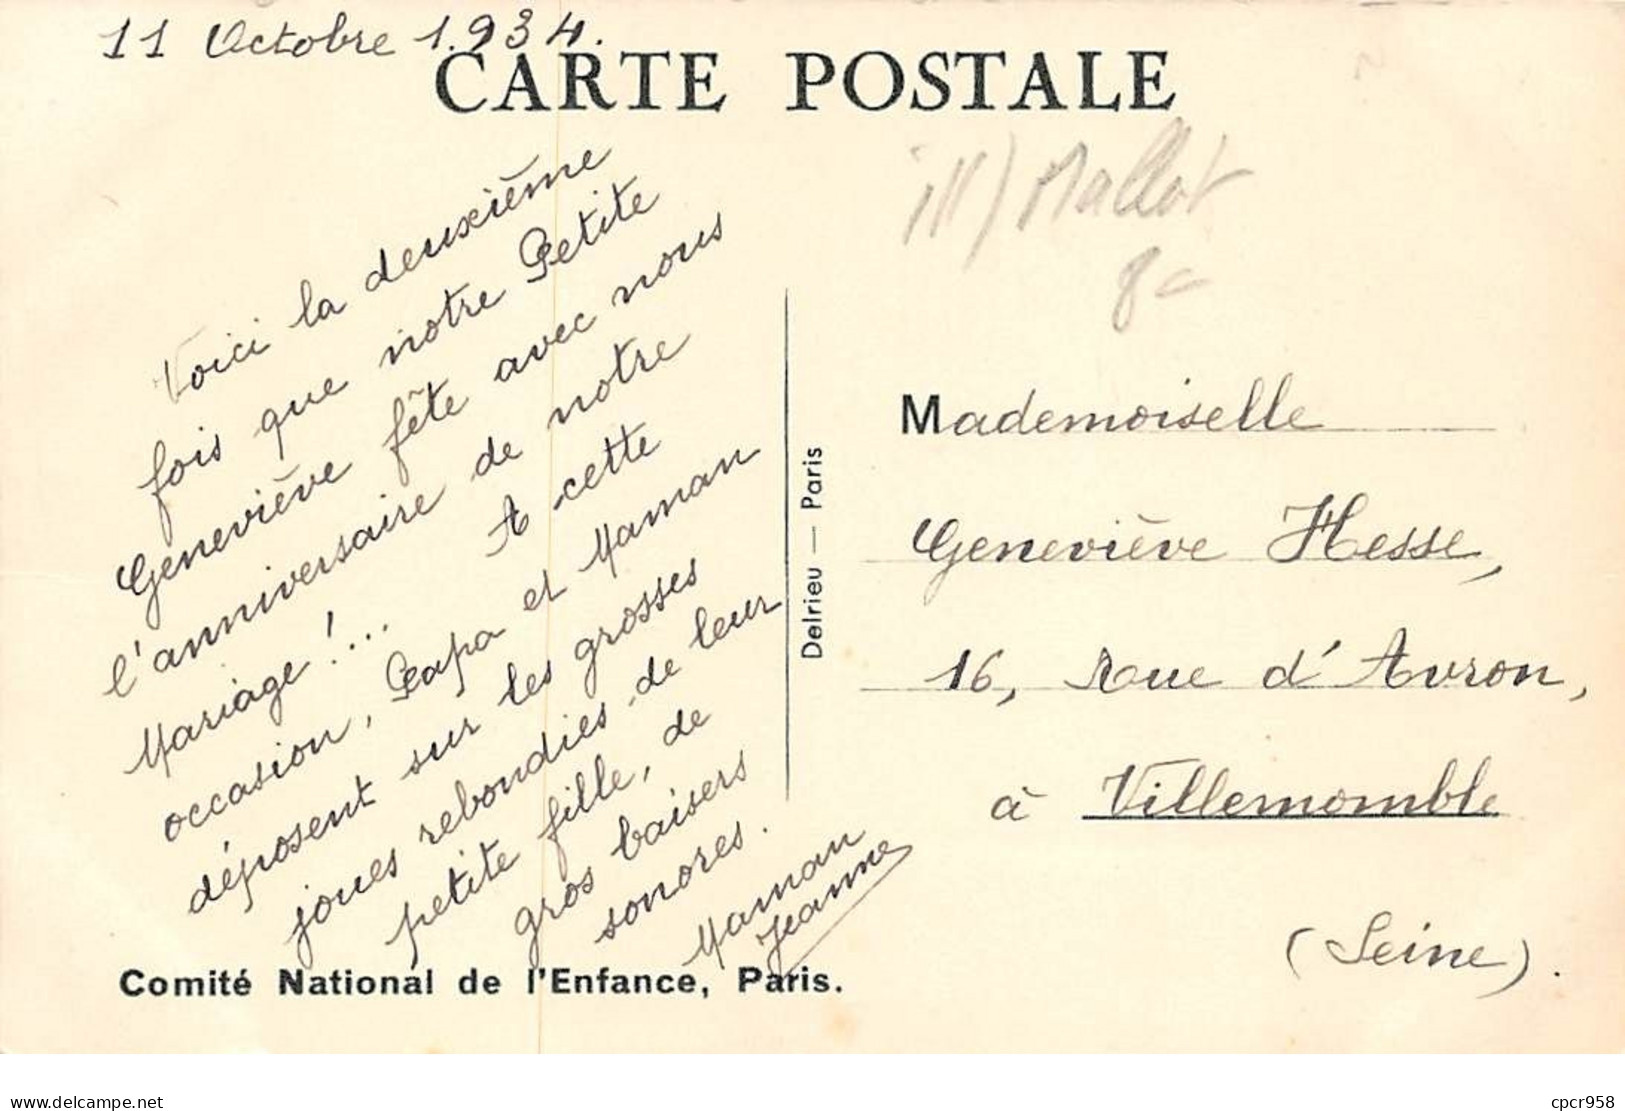 11 Octobre 1.934.
CARTE POSTALE
ill) Mallot
8c
Voici la deuxième
fois que notre Petite
Geneviève fête avec nous
l'anniversaire de notre
Mariage !... A cette
occasion, Papa et Maman
déposent sur les grosses
joues rebondies de leur
petite fille, de
gros baisers
sonores.
Maman
Jeanne
Comité National de l'Enfance, Paris.
Delrieu — Paris
Mademoiselle
Geneviève Hesse,
16, Rue d'Avron,
à Villemomble
(Seine).
www.delcampe.net
cpcr958